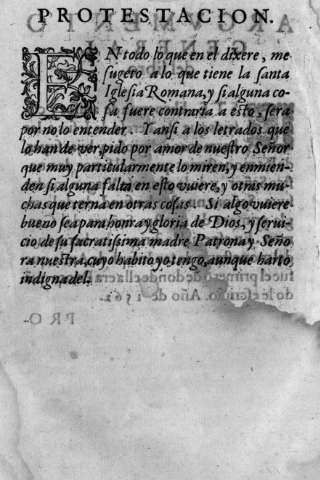 PROTESTACION.
EN todo lo que en el dixere, me
sugeto a lo que tiene la santa
Iglesia Romana, y si alguna co-
sa fuere contraria a esto, sera
por no lo entender. Y ansi a los letrados que
lo han de ver, pido por amor de nuestro Señor
que muy particularmente lo miren, y enmien-
den si alguna falta en esto vuiere, y otras mu-
chas que terna en otras cosas. Si algo vuiere
bueno sea para honra y gloria de Dios, y serui-
cio de su sacratissima madre Patrona y Seño
ra nuestra, cuyo habito yo tengo, aunque harto
indigna del.